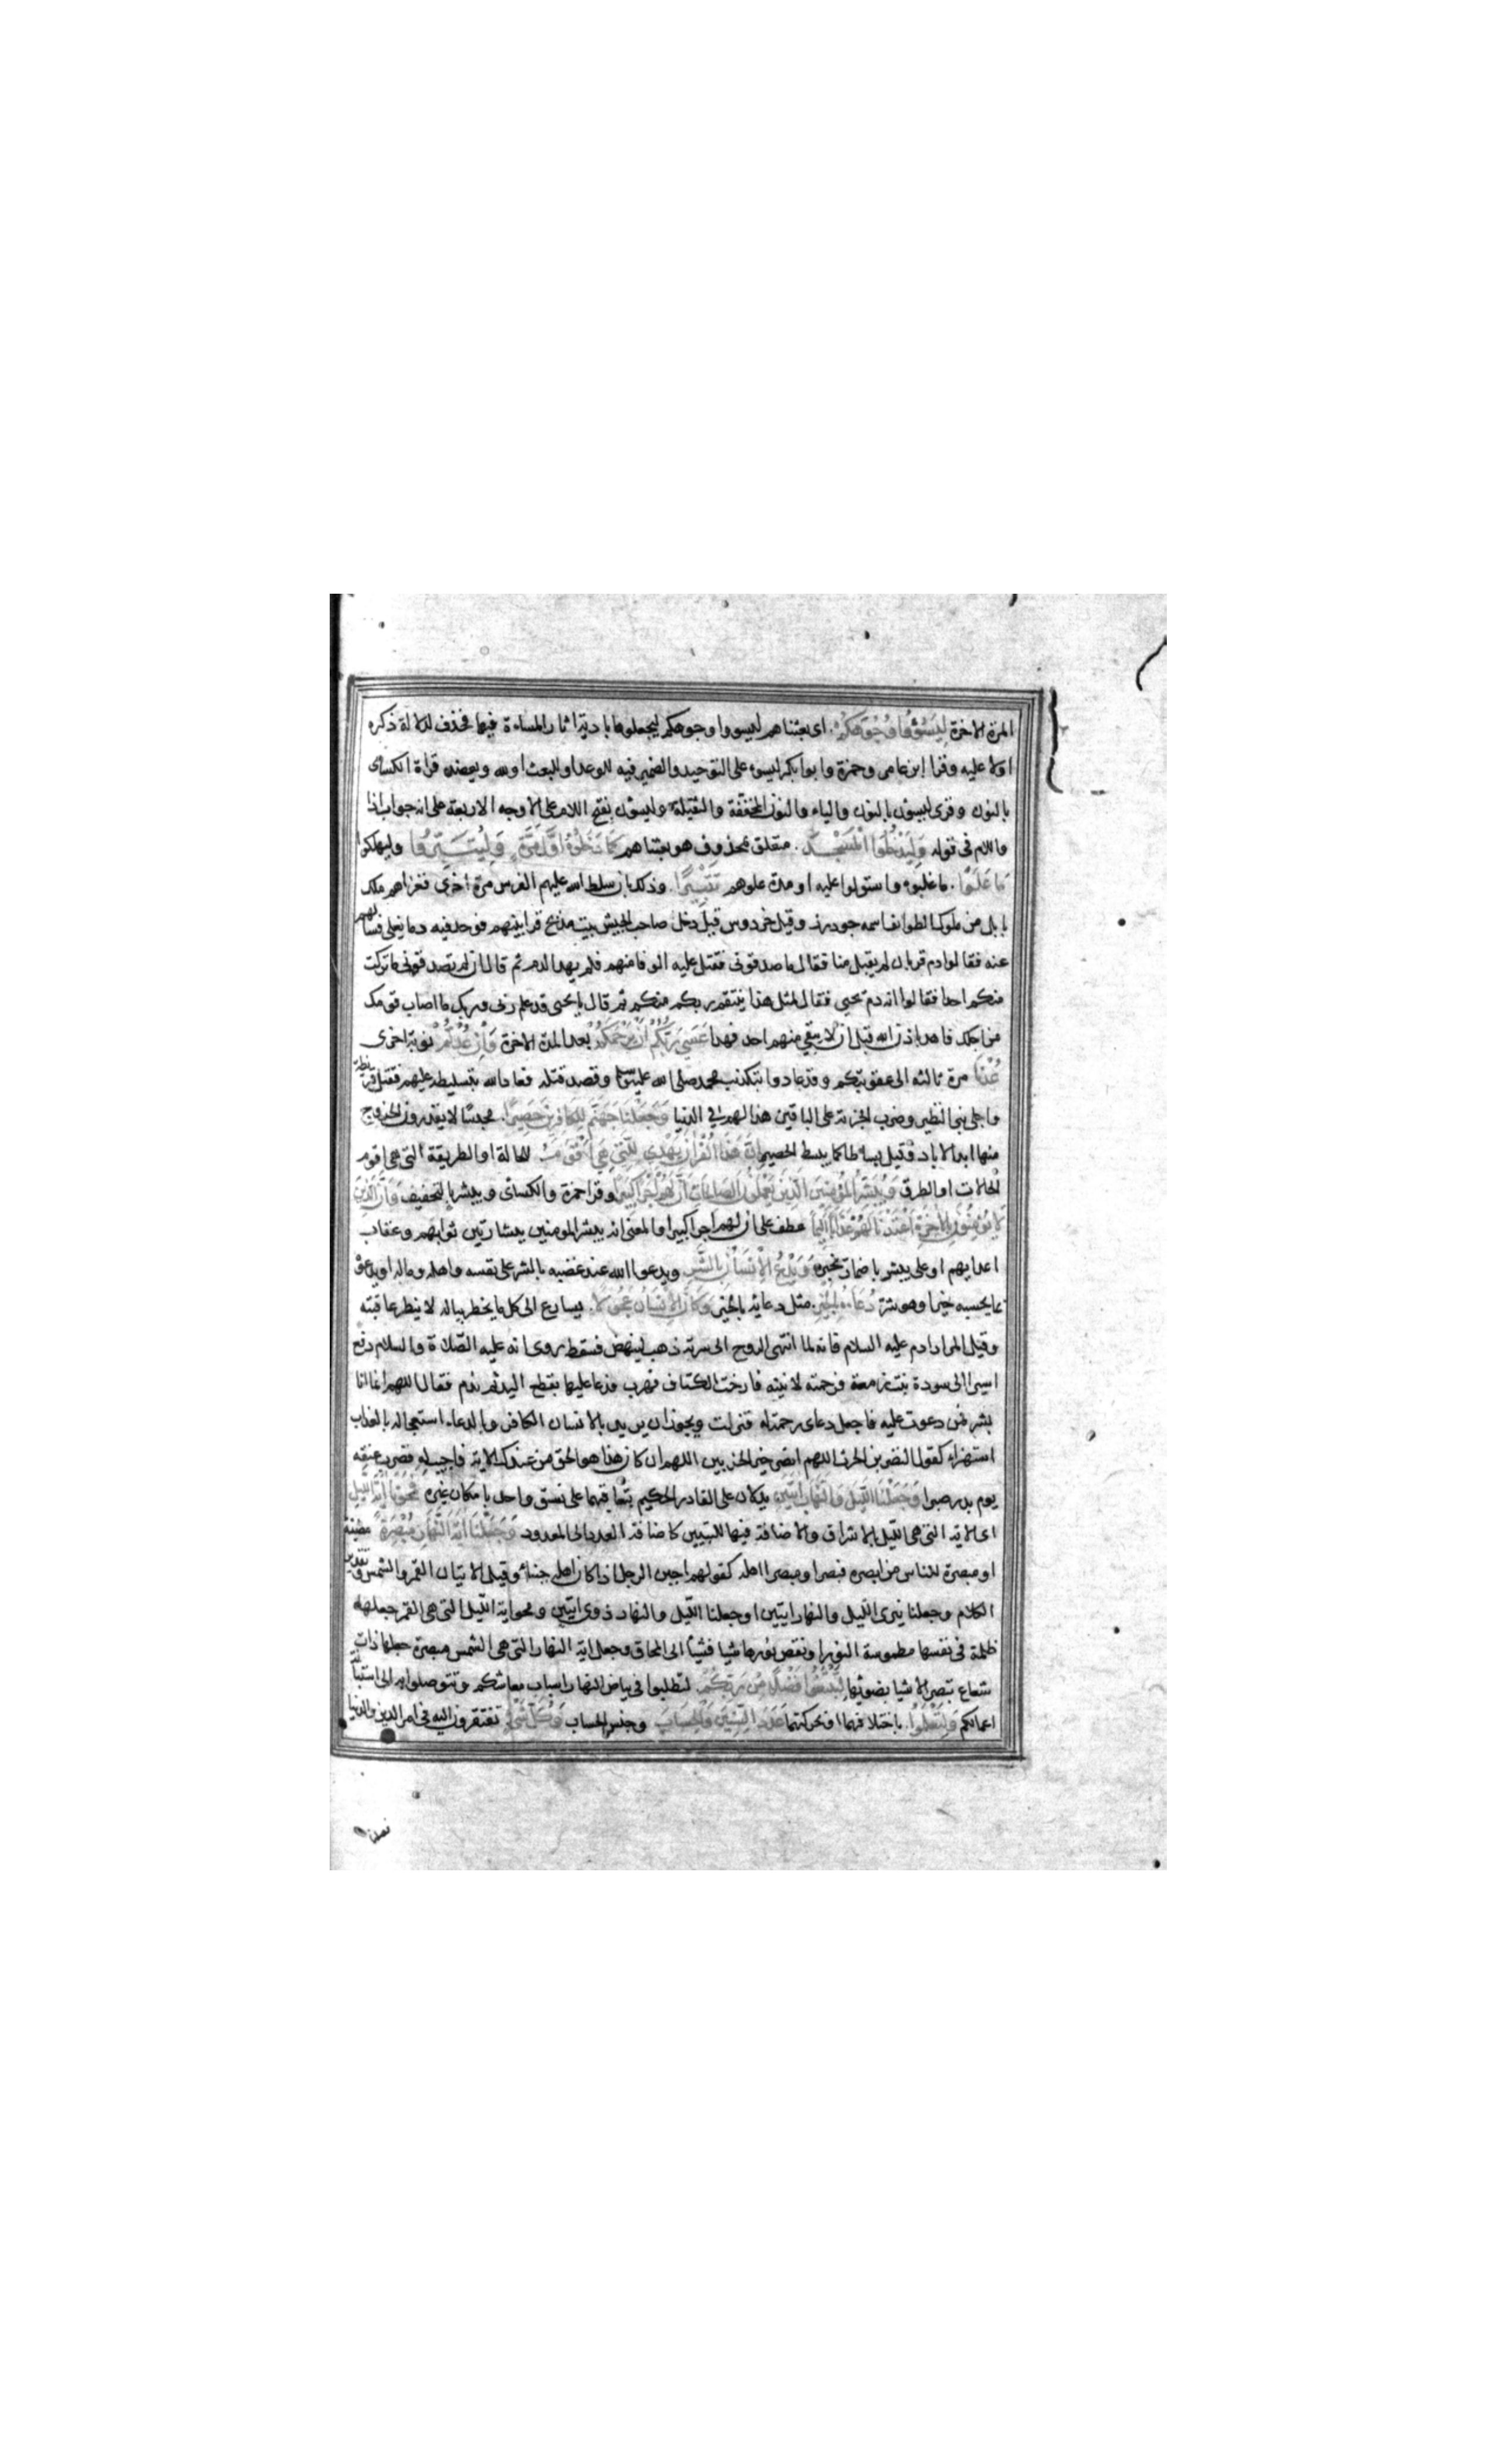 المرة الاخرة لِيَسُوٓؤُا وُجُوهَكُمْ. اى بعثناهم ليسووا وجوهكم ليجعلوها بادية اثار المساءة فيها فحذف لدلالة ذكره
اولا عليه وقرا ابن عامر وحمزة وابوا بكر ليسوء على التوحيد والضمير فيه للوعد او للبعث او لله ويعضده قراة الكسائى
بالنون وقرى لنسون بالنون والياء والنون المخففة والثقيلة وليسون بفتح اللام على الاوجه الاربعة على انه جواب اذا
واللام فى قوله وَلِيَدْخُلُوا الْمَسْجِدَ. متعلق بمحذوف هو بعثناهم كَمَا دَخَلُوهُ اَوَّلَ مَرَّةٍ وَلِيُتَبِّرُوا وليهلكوا
مَا عَلَوْا. ما غلبوه واستولوا عليه او مدة علوهم تَتْبِيرًا. وذلك بان سلط الله عليهم الفرس مرة اخرى فغزاهم ملك
بابل من ملوك الطوائف اسمه جودرز وقيل خردوس قيل دخل صاحب الجيش بيت مذبح قرابينهم فوجد فيه دما يغلى فسالهم
عنه فقالوا دم قربان لم يقبل منا فقال ما صدقونى فقتل عليه الوفا منهم فلم يهدا الدم ثم قال ان لم تصدقونى ما تركت
منكم احدا فقالوا انه دم يحيى فقال لمثل هذا ينتقم ربكم منكم ثم قال يا يحيى قد علم ربى وربك ما اصاب قومك
من اجلك فاهدا باذن الله قبل ان لا يبقى منهم احد فهدا عَسَى رَبُّكُمْ اَنْ يَرْحَمَكُمْ بعد المرة الاخرة وَاِنْ عُدْتُمْ نوبة اخرى
عُدْنَا مرة ثالثه الى عقوبتكم وقد عادوا بتكذيب محمد صلى الله عليه وسلم وقصد قتله فعاد الله بتسليطه عليهم فقتل قريظة
واجلى بنى النظير وضرب الجزية على الباقين هذا لهم فى الدنيا وَجَعَلْنَا جَهَنَّمَ لِلْكَافِرِينَ حَصِيرًا. محبسا لا يقدرون الخروج
منها ابد الاباد وقيل بساطا كما يبسط الحصير اِنَّ هَذَا الْقُرْاٰنَ يَهْدِى لِلَّتِى هِىَ اَقْوَمُ للحالة او الطريقة التى هى اقوم
الحالات او الطرق وَيُبَشِّرُ الْمُؤْمِنِينَ الَّذِينَ يَعْمَلُونَ الصَّالِحَاتِ اَنَّ لَهُمْ اَجْرًا كَبِيرًا وقرا حمزة والكسائى ويبشر بالتخفيف وَاَنَّ الَّذِينَ
لَا يُؤْمِنُونَ بِالْاٰخِرَةِ اَعْتَدْنَا لَهُمْ عَذَابًا اَلِيمًا عطف على ان لهم اجرا كبيرا والمعنى انه يبشر المومنين ببشارتين ثوابهم وعقاب
اعدايهم او على يبشر باضمار يخبر وَيَدْعُ الْاِنْسَانُ بِالشَّرِّ ويدعوا الله عند غضبه بالشر على نفسه واهله وماله او يدعوه
بما يحسبه خيرا وهو شر دُعَاءَهُ بِالْخَيْرِ. مثل دعايه بالخير وَكَانَ الْاِنْسَانُ عَجُولًا. يسارع الى كل ما يخطر بباله لا ينظر عاقبته
وقيل المراد ادم عليه السلام فانه لما انتهى الروح الى سرته ذهب لينهض فسقط روى انه عليه الصلاة والسلام دفع
اسيرا الى سودة بنت زمعة فرحمته لانينه فارخت الكتاف فهرب فدعا عليها بقطع اليد ثم ندم فقال اللهم انما انا
بشر فمن دعوت عليه فاجعل دعاى رحمة له فنزلت ويجوز ان يريد بالانسان الكافر وبالدعاء استعجاله بالعذاب
استهزاء كقول النضر بن الحرث اللهم انصر خير الحزبين اللهم ان كان هذا هو الحق من عندك الاية فاجيب له فضرب عنقه
يوم بدر صبرا وَجَعَلْنَا اللَّيْلَ وَالنَّهَارَ اٰيَتَيْنِ يدلان على القادر الحكيم بتعاقبهما على نسق واحد بامكان غيره فَمَحَوْنَا اٰيَةَ اللَّيْلِ
اى الاية التى هى الليل بالاشراق والاضافة فيها للتبيين كاضافة العدد الى المعدود وَجَعَلْنَا اٰيَةَ النَّهَارِ مُبْصِرَةً مضيئة
او مبصرة للناس من ابصره فبصر او مبصرا اهله كقولهم اجبن الرجل اذا كان اهله جبناء وقيل الايتان القمر والشمس وتقدير
الكلام وجعلنا نيرى الليل والنهار ايتين او جعلنا الليل والنهار ذوى ايتين ومحو اية الليل التى هى القمر جعلها
ظلمة فى نفسها مطموسة النور او نقص نورها شيا فشيا الى المحاق وجعل اية النهار التى هى الشمس مبصرة جعلها ذات
شعاع تبصر الاشيا بضوئها لِتَبْتَغُوا فَضْلًا مِنْ رَبِّكُمْ لتطلبوا فى بياض النهار اسباب معاشكم وتتوصلوا به الى استبانة
اعمالكم وَلِتَعْلَمُوا. باختلافهما او بحركتهما عَدَدَ السِّنِينَ وَالْحِسَابَ وجنس الحساب وَكُلَّ شَىْءٍ تفتقرون اليه فى امر الدين والدنيا